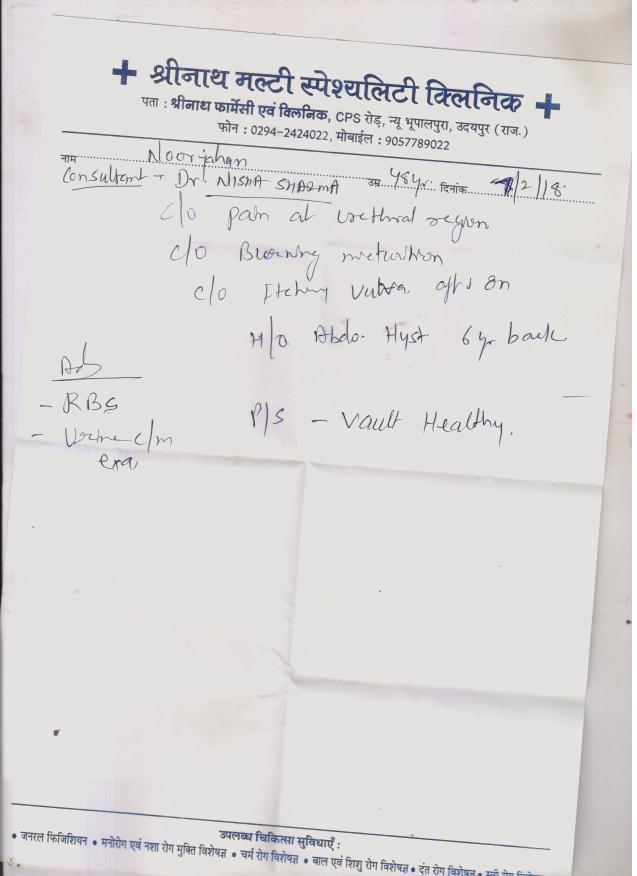 श्रीनाथ मल्टी स्पेश्यलिटी क्लिनिक
पता : श्रीनाथ फार्मेसी एवं क्लिनिक, CPS रोड़, न्यू भूपालपुरा, उदयपुर (राज.)
फोन : 0294-2424022, मोबाईल : 9057789022
नाम Noorjahan
Consultant - Dr. NISHA SHARMA उम्र 48yr. दिनांक /2/18
c/o pain at urethral region
c/o Burning
c/o Itching vulva
H/O Abdo. Hyst 6 yr back
Adv
- RBS
P/S - Vault Healthy.
- Urine c/m
exa
उपलब्ध चिकित्सा सुविधाएँ :
• जनरल फिजिशियन • मनोरोग एवं नशा रोग मुक्ति विशेषज्ञ • चर्म रोग विशेषज्ञ • बाल एवं शिशु रोग विशेषज्ञ • दंत रोग विशेषज्ञ •